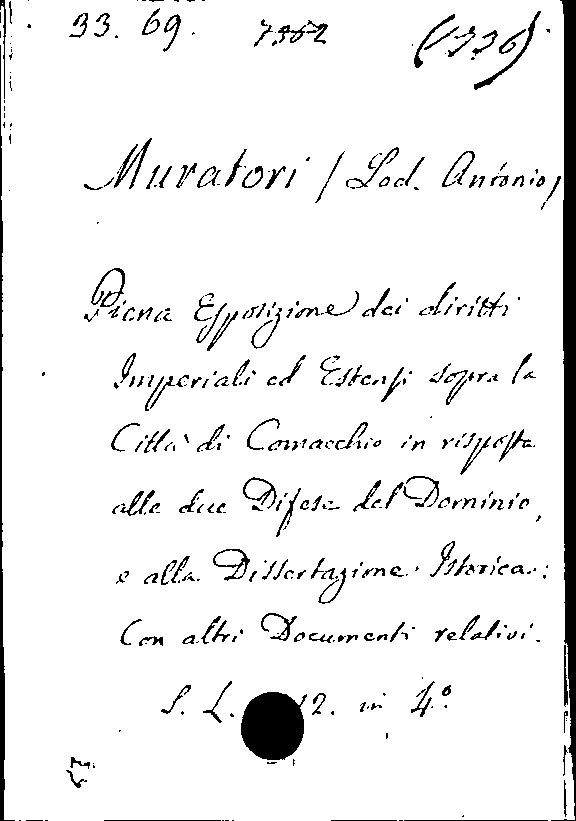 33. 69. 7362 (1736)
Muratori (Lod. Antonio)
Piena Esposizione dei diritti
Imperiali ed Estensi sopra la
Città di Comacchio in risposta
alle due Difese del Dominio,
e alla Dissertazione Istorica:
Con altri Documenti relativi.
S. L. 12. in 4º